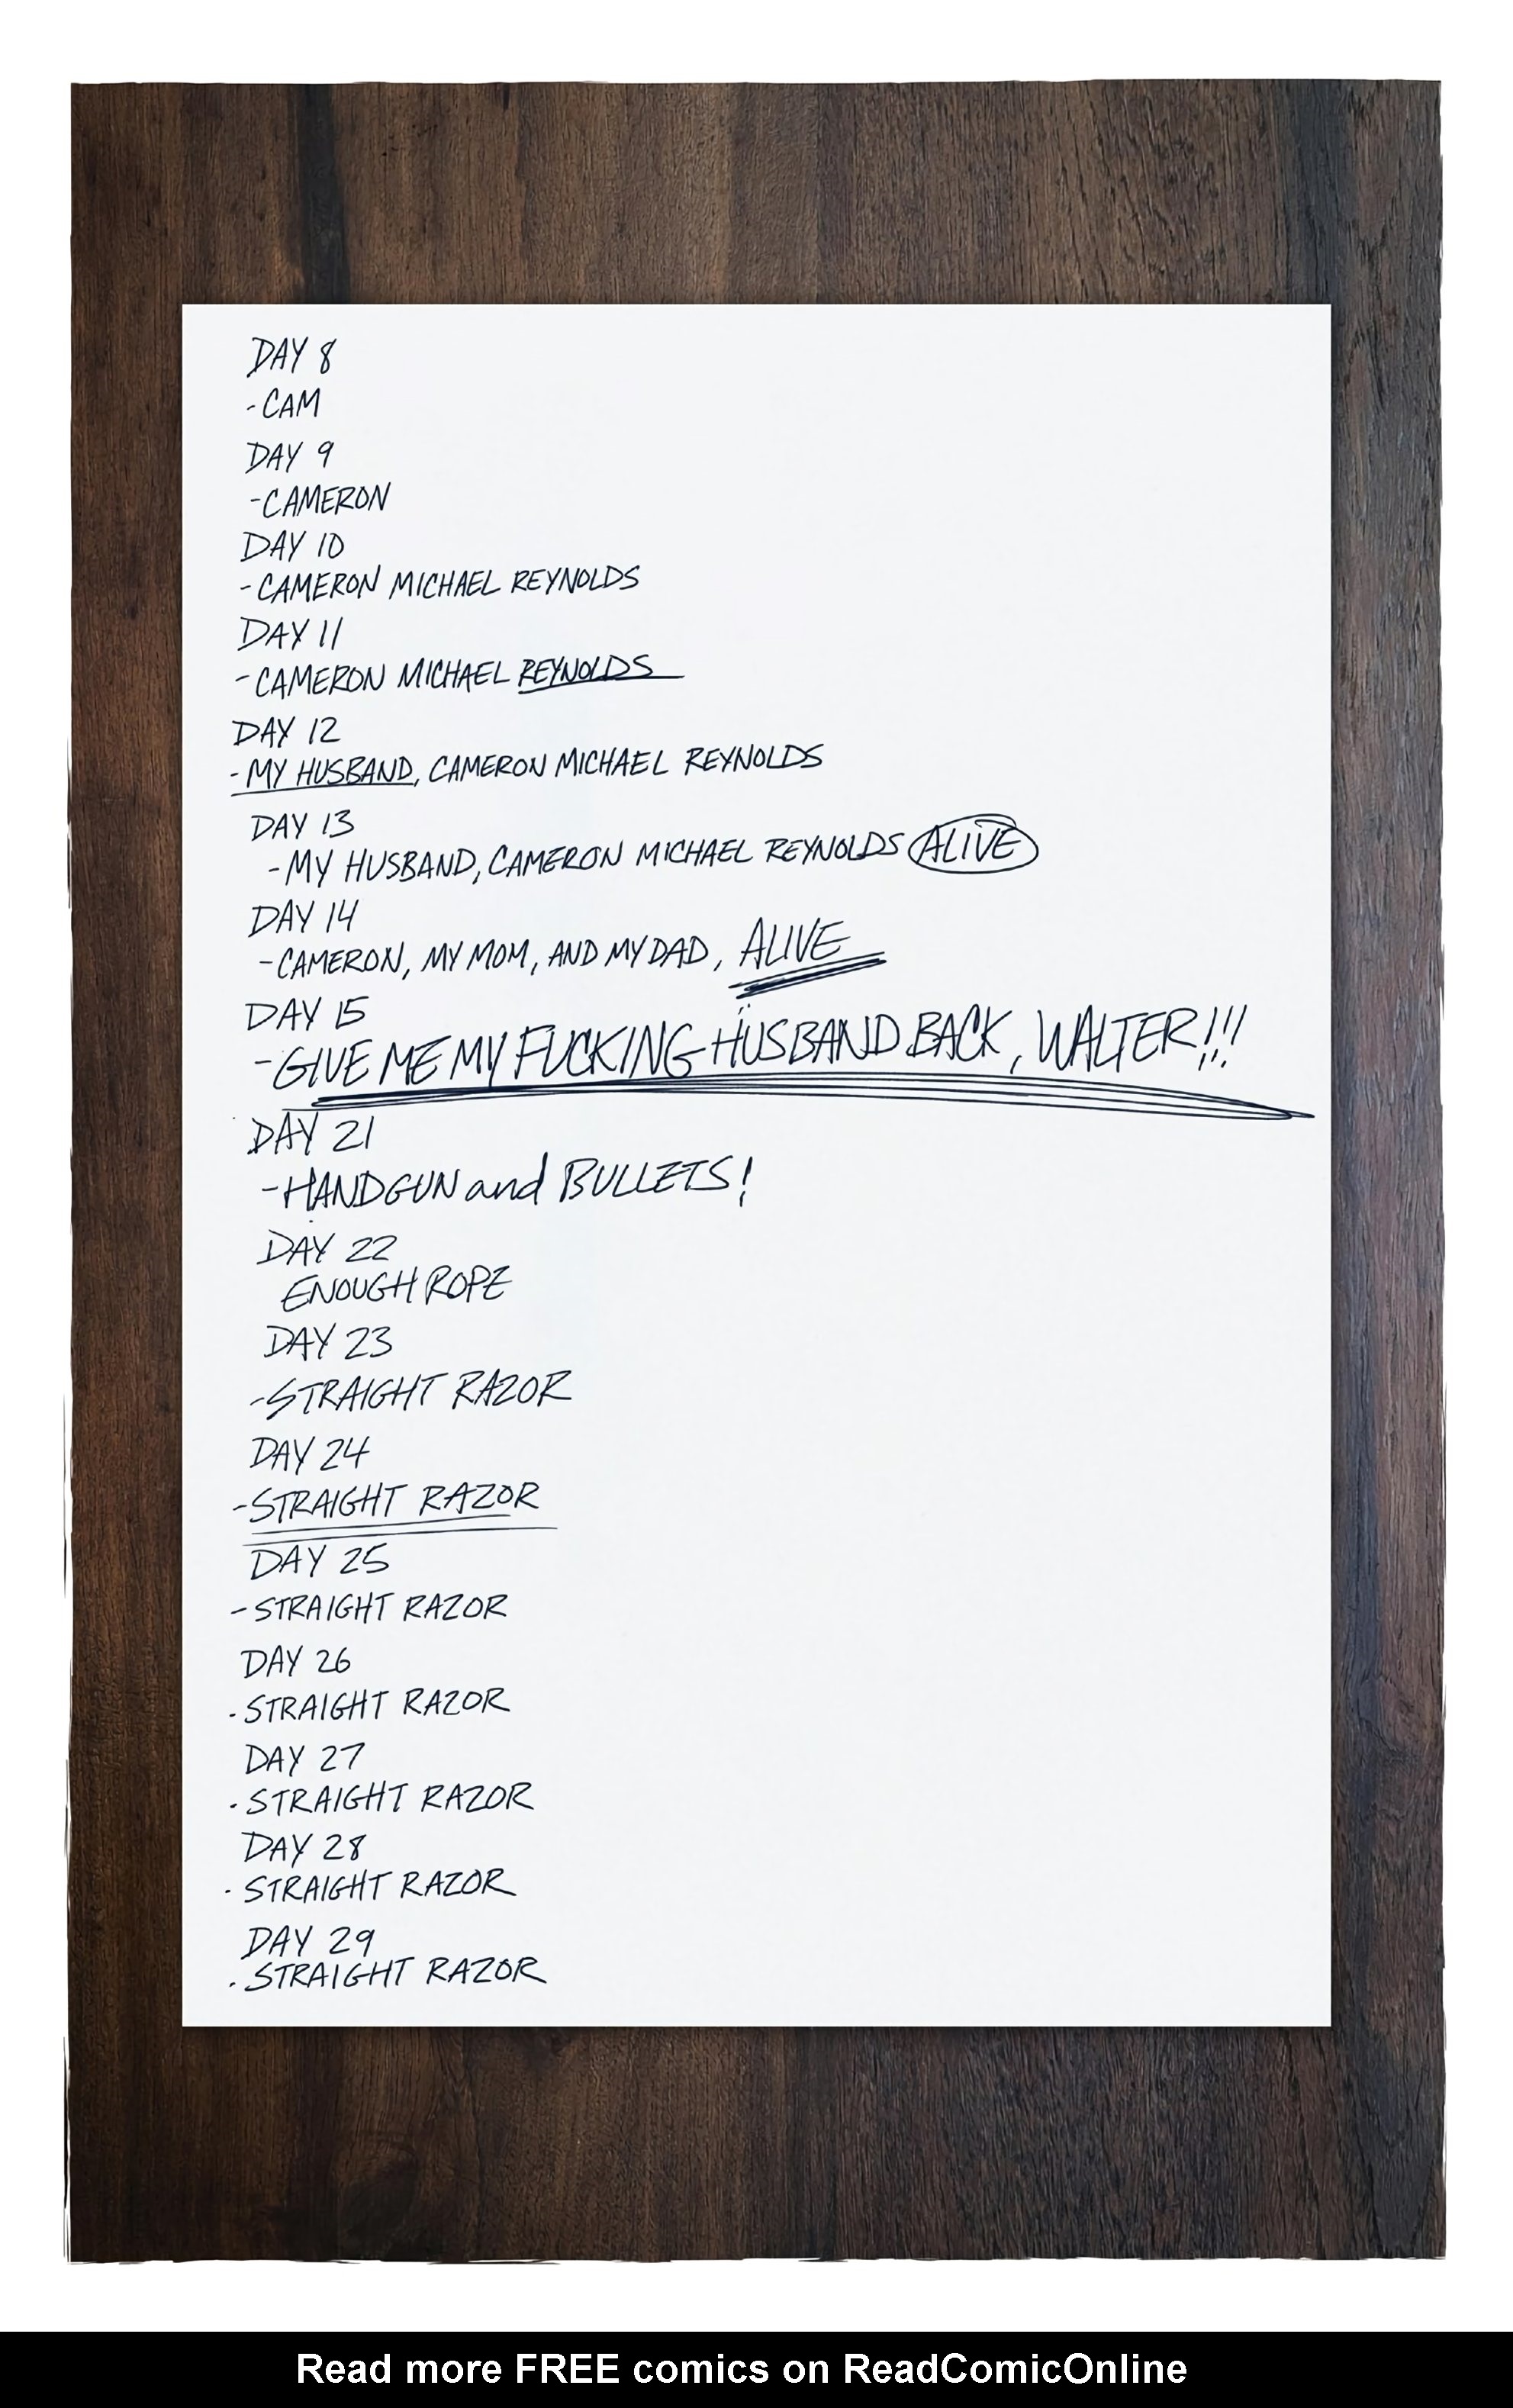 DAY 8
- CAM
DAY 9
- CAMERON
DAY 10
- CAMERON MICHAEL REYNOLDS
DAY 11
- CAMERON MICHAEL REYNOLDS
DAY 12
- MY HUSBAND, CAMERON MICHAEL REYNOLDS
DAY 13
- MY HUSBAND, CAMERON MICHAEL REYNOLDS ALIVE
DAY 14
- CAMERON, MY MOM, AND MY DAD, ALIVE
DAY 15
- GIVE ME MY FUCKING HUSBAND BACK, WALTER!!!
DAY 21
- HANDGUN and BULLETS!
DAY 22
ENOUGH ROPE
DAY 23
- STRAIGHT RAZOR
DAY 24
- STRAIGHT RAZOR
DAY 25
- STRAIGHT RAZOR
DAY 26
. STRAIGHT RAZOR
DAY 27
. STRAIGHT RAZOR
DAY 28
. STRAIGHT RAZOR
DAY 29
. STRAIGHT RAZOR
Read more FREE comics on ReadComicOnline